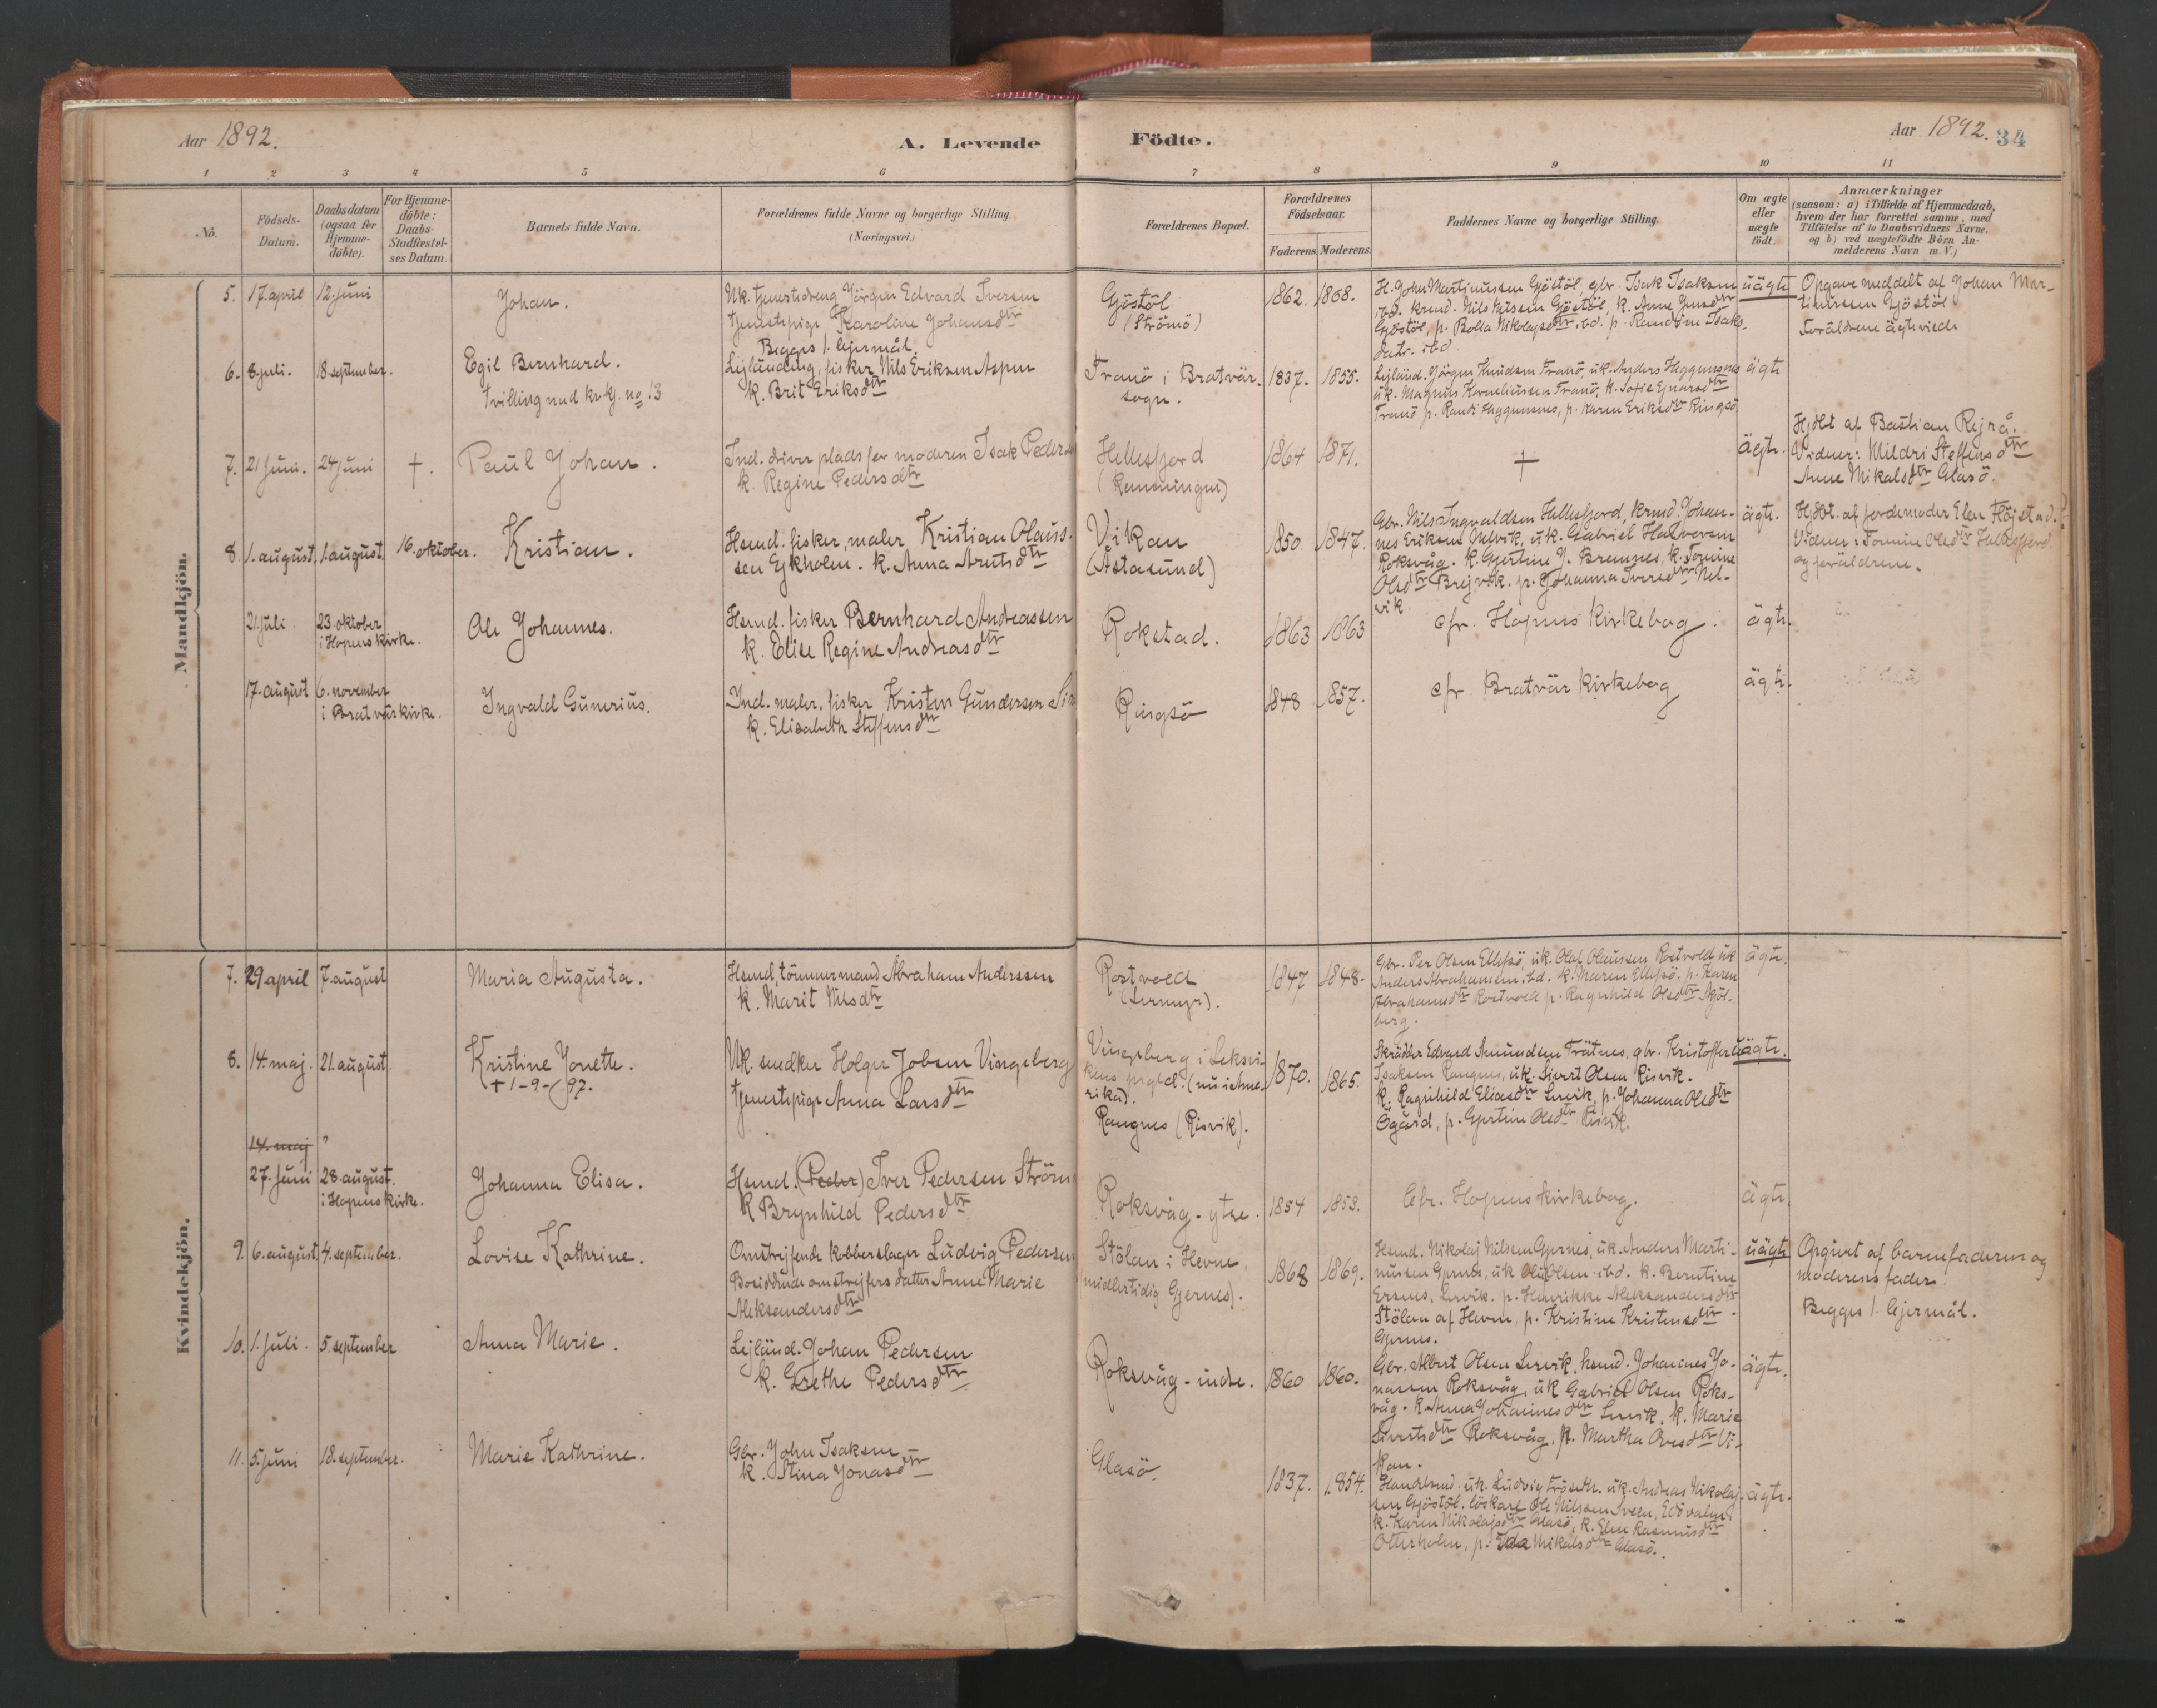 Aar 1892.
A. Levende Födte.
Aar 1892. 34
1 2 3 4 5 6 7 8 9 10 11
No.
Födsels-
Datum.
Daabsdatum
(ogsaa for
Hjemme-
döbte).
For Hjemme-
döbte:
Daabs-
Stadfæstel-
ses Datum.
Barnets fulde Navn.
Forældrenes fulde Navne og borgerlige Stilling
(Næringsvei.)
Forældrenes Bopæl.
Forældrenes
Födselsaar.
Faderens. Moderens.
Faddernes Navne og borgerlige Stilling.
Om ægte
eller
uægte
födt.
Anmærkninger
(saasom: a) i Tilfælde af Hjemmedaab,
hvem der har forrettet samme, med
Tilföielse af to Daabsvidners Navne.
og b) ved uægtefödte Börn An-
melderens Navn m. V.)
Mandkjön.
5. 17. april 12. juni
Johan.
Uk. tjenestedreng Jörgen Edvard Iversen
tjenestepige Karoline Johansdtr
Begges 1. lejermål.
Gjöstöl
(Strömö)
1862. 1868.
H. John Martinussen Gjöstöl, gbr. Isak Isaksen
ibd. krmd. Nils Nilssen Gjöstöl, k. Anne Jensdtr
Gjöstöl, p. Bolla Nikolajsdtr ibd. p. Randine Isaks-
datr. ibd
uägte
Opgave meddelt af Johan Mar-
tinussen Gjöstöl
Foräldrene ägteviede
6. 8. juli. 18. september.
Egil Bernhard.
Tvilling med kvkj. no 13
Lejländing, fisker Nils Eriksen Aspen
k. Brit Eriksdtr
Tranö i Bratvär
sogn.
1837. 1855.
Lejländ. Jörgen Knudsen Tranö, uk. Anders Heggemsnes
uk. Magnus Korneliussen Tranö, k. Sofie Ejnarsdtr
Tranö p. Randi Heggemsnes, p. Karen Eriksdtr Ringsö
ägte
7. 21 juni. 24 juni +.
Paul Johan.
Ind. driver plads for moderen Isak Peders
k. Regine Pedersdtr
Hellesfjord
(Remmingen)
1864 1871.
+
ägte.
Hjdbt af Bastian Rejrå.
Vidner: Mildri Steffensdtr
Anne Mikalsdtr Glasö.
8. 1. august. 1. august. 16. oktober.
Kristian.
Hsmd. fisker, maler Kristian Olaus-
sen Ejkholm. k. Anna Arntsdtr
Vikan
(Åstasund)
1850. 1847.
Gbr. Nils Ingvaldsen Hellesfjord, krmd. Johan-
nes Eriksen Nelvik, uk. Gabriel Halversen
Roksvåg. k. Gjertine J. Bremnes, k. Tomine
Olsdtr Brejvik. p. Johanna Iversdtr Nel-
vik.
ägte.
Hjdbt. af jordemoder Elen Höjstad.
Vidner: Tomine Olsdtr Hellesfjord
og foräldrene.
21. juli 23. oktober
i Hopens kirke.
Ole Johannes.
Hsmd. fisker Bernhard Andreassen
k. Elise Regine Andreasdtr
Rokstad.
1863 1863
cfr. Hopens Kirkebog.
ägte.
17. august 6. november
i Bratvär kirke.
Ingvald Gunerius.
Ind. maler. fisker Kristen Gundersen
k. Elisabeth Steffensdtr
Ringsö
1848 1857.
cfr. Bratvär kirkebog
ägte.
Kvindekjön.
7. 29 april 7. august
Maria Augusta.
Hsmd, tömmermand Abraham Anderssen
k. Marit Nilsdtr
Rostvold
(Lermyr).
1847 1848.
Gbr. Per Olsen Ellefsö, uk. Olaf Olaussen Rostvold uk
Anders Abrahamsen ibd. k. Maren Ellefsö. p. Karen
Abrahamsdtr Rostvold p. Ragnhild Olsdtr Skjöl-
berg.
ägte.
8. 14. maj. 21. august
Kristine Jonette.
+ 1-9-/92.
Uk. snedker Holger Jobsen Vingsberg
tjenestepige Anna Larsdtr
Vingsberg i Leksvi-
kens prgtd. (nu i Ame-
rika).
Rangnes (Risvik).
1870. 1865.
Skrädder Edvard Amundsen Trätnes, gbr. Kristoffer
Isaksen Rangnes, uk. Sivert Olsen Risvik.
k. Ragnhild Eliasdtr Lervik, p. Johanna Olsdtr
Ögård, p. Gjertine Olsdtr Risvik.
uägte.
14. maj ?
27. juni 28. august.
i Hopens kirke.
Johanna Elisa.
Hsmd. (Peder) Iver Pedersen Ström
k Brynhild Pedersdtr
Roksvåg - ytre.
1854 1853.
Cfr. Hopens kirkebog.
ägte
9. 6. august 4. september.
Lovise Kathrine.
Omstrejfende kobberslager Ludvig Pedersen
omstrejfers datter Anne Marie
Aleksandersdtr
Stölan i Hevne
midlertidig Gjernes).
1868 1869.
Hsmd. Nikolaj Nilsen Gjernes, uk. Anders Marti-
nussen Gjernes, uk Ole Olsen ibd. k. Berntine
Ersnes, Lervik. p. Henrikke Aleksandersdtr
Stölan af Hevne, p. Kristine Kristensdtr
Gjernes.
uägte
Opgivet af barnefaderen og
moderens fader
Begges 1. lejermål.
10. 1. juli. 5. september
Anna Marie.
Lejländ. Johan Pedersen
k. Grethe Pedersdtr
Roksvåg - indre.
1860 1860.
Gbr. Albert Olsen Lervik, hsmd. Johannes Jo-
nassen Roksvåg, uk Gabriel Olsen Roks-
våg. k. Anna Johannesdtr Lervik, k. Marie
Sivertsdtr Roksvåg, p. Martha Ovesdtr Vi-
kan.
ägte.
11. 5. juni 18. september.
Marie Kathrine.
Gbr. John Isaksen
k. Stina Jonasdtr
Glasö.
1837. 1854.
Handelsmd. uk. Ludvig Fröseth. uk. Andreas Nikolaj-
sen Gjöstöl. löskarl Ole Nilssen Sveen, Edövalen
k. Karen Nikolajsdtr Glasö, k. Elen Rasmusdtr
Otterholm, p. Ida Mikalsdtr Glasö.
ägte.